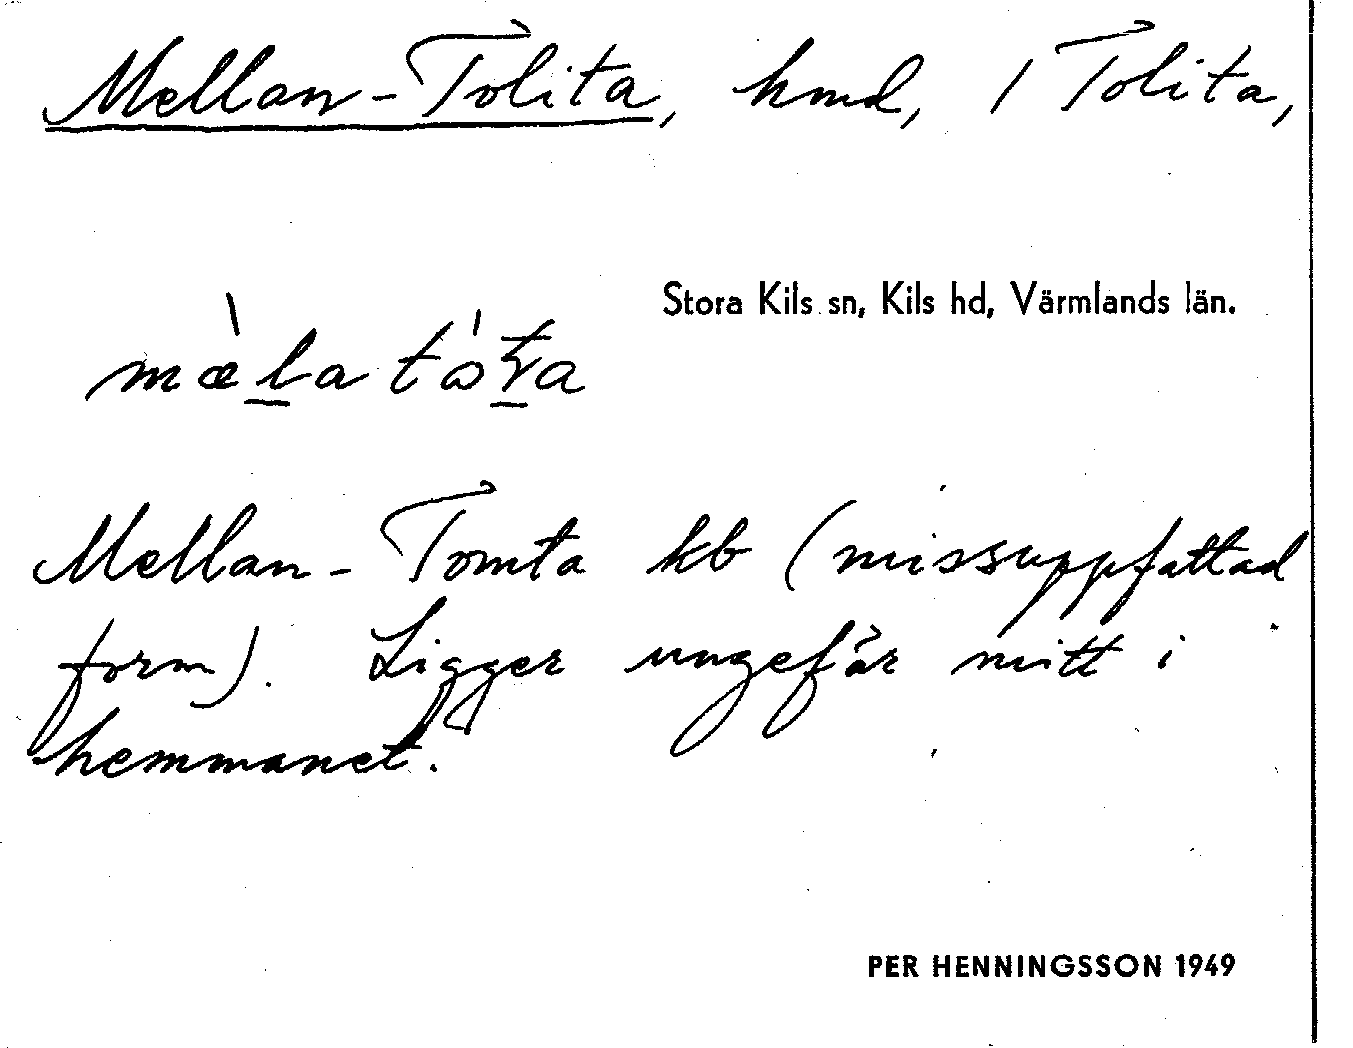 Mellan-Tolita, hmd, 1 Tolita,
Stora Kils sn, Kils hd, Värmlands län.
Mellan-Tomta kb (missuppfattad
form). Ligger ungefär mitt i
hemmanet.
PER HENNINGSSON 1949